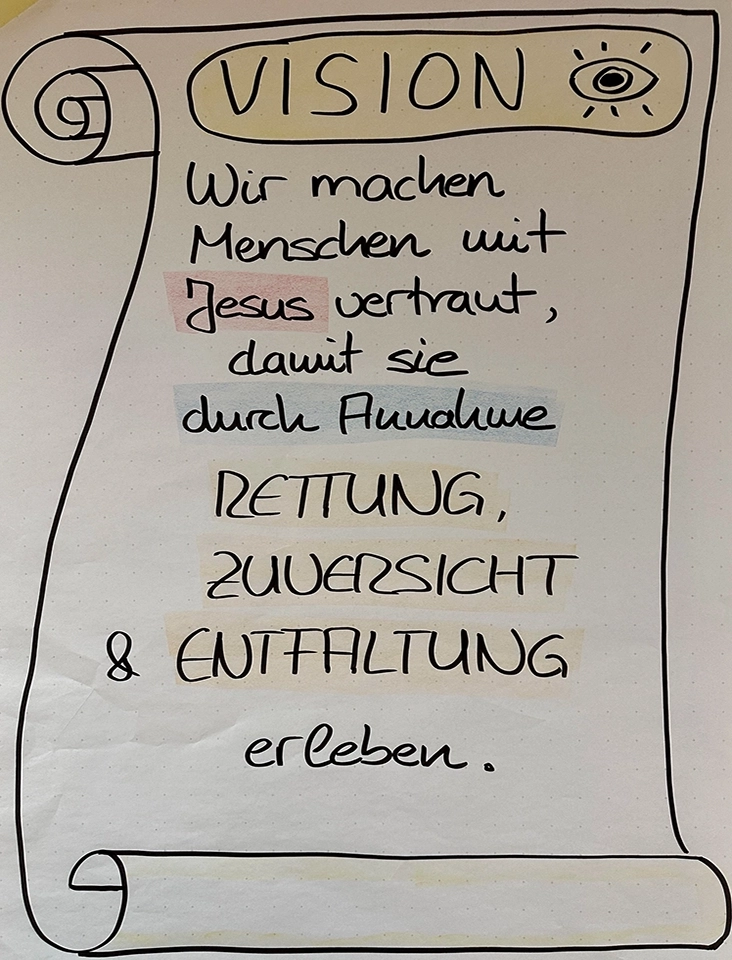 VISION
Wir machen
Menschen mit
Jesus vertraut,
damit sie
durch Annahme
RETTUNG,
ZUVERSICHT
& ENTFALTUNG
erleben.